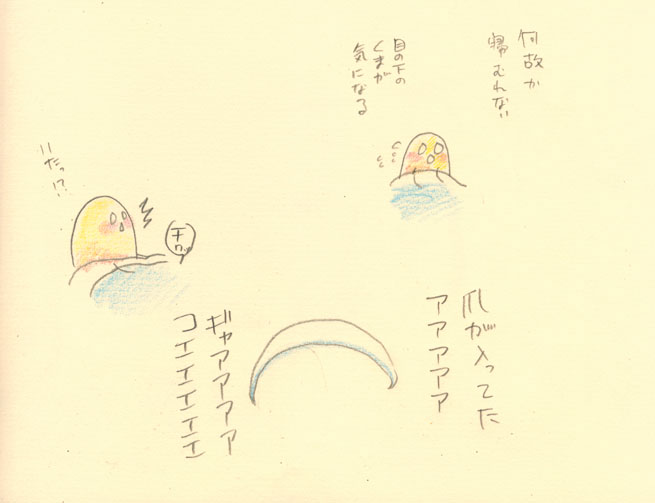 何故か
帰むれない
目の下の
くまが
気になる
いたっ!?
チ
クッ
爪が入ってた
アアアアア
ギャアアアア
コエエエエエ